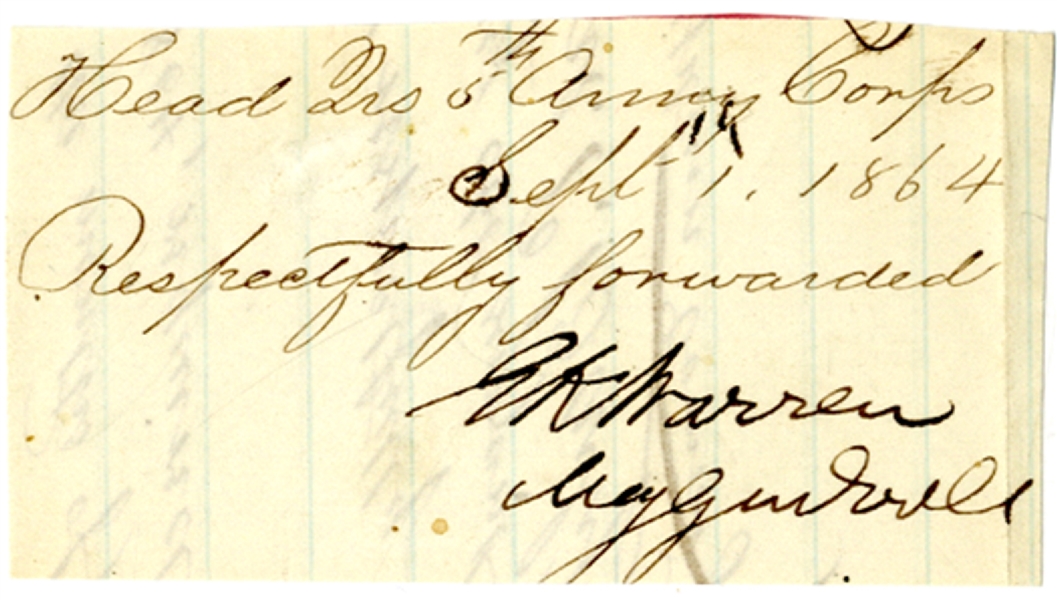 Head Qrs 5th Army Corps
Sept 1. 1864
Respectfully forwarded
GKWarren
Maj Gen Vols